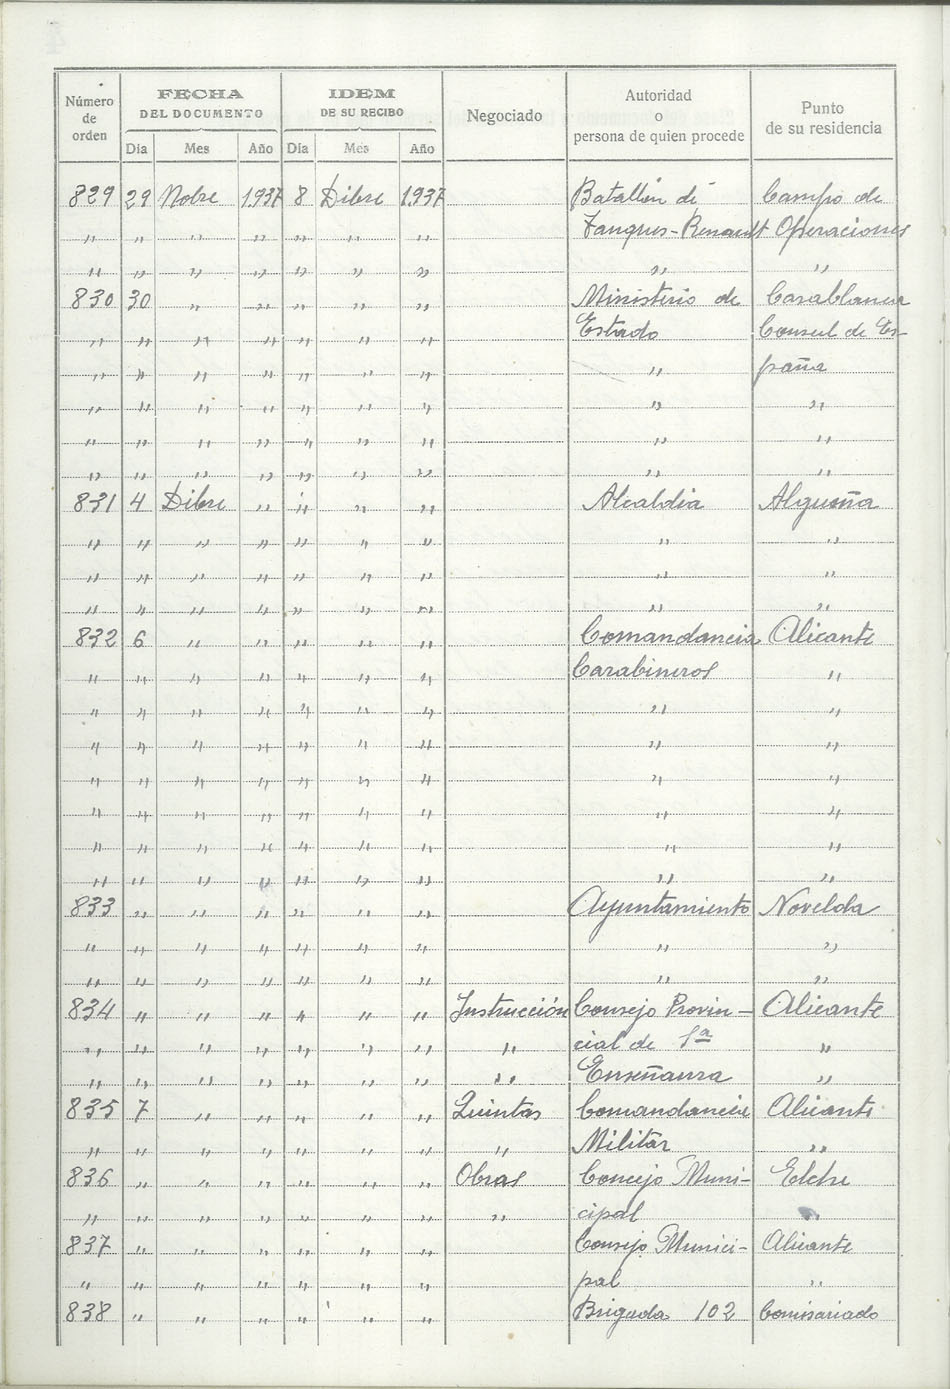 Número de orden | FECHA DEL DOCUMENTO | IDEM DE SU RECIBO | Negociado | Autoridad o persona de quien procede | Punto de su residencia
Día | Mes | Año | Día | Mes | Año
829 29 Nobre 1.937 8 Dibre 1.937 Batallón de Campo de
" " " " " " " Tanques-Renault Operaciones
" " " " " " " " "
830 30 " " " " " Ministerio de Casablanca
" " " " " " " Estado Consul de Es-
" " " " " " " " paña
" " " " " " " " "
" " " " " " " " "
" " " " " " " " "
831 4 Dibre " " " " Alcaldia Algueña
" " " " " " " " "
" " " " " " " " "
" " " " " " " " "
832 6 " " " " " Comandancia Alicante
" " " " " " " Carabineros "
" " " " " " " " "
" " " " " " " " "
" " " " " " " " "
" " " " " " " " "
" " " " " " " " "
" " " " " " " " "
833 " " " " " " Ayuntamiento Novelda
" " " " " " " " "
" " " " " " " " "
834 " " " " " " Instrucción Consejo Provin- Alicante
" " " " " " " " cial de 1ª "
" " " " " " " " Enseñanza "
835 7 " " " " " Quintas Comandancia Alicante
" " " " " " " " Militar "
836 " " " " " " Obras Concejo Muni- Elche
" " " " " " " " cipal "
837 " " " " " " Consejo Munici- Alicante
" " " " " " " pal "
838 " " " " " " Brigada 102 Comisariado